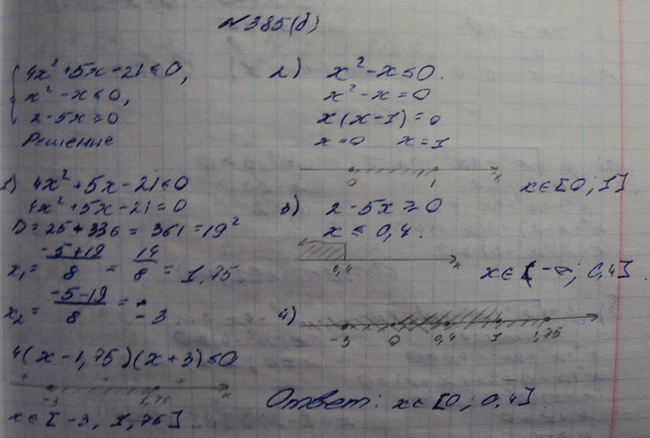 N385(б)
4x² + 5x - 21 ≤ 0,
x² - x ≤ 0,
2 - 5x ≥ 0
Решение
1) 4x² + 5x - 21 ≤ 0
4x² + 5x - 21 = 0
D = 25 + 336 = 361 = 19²
x₁ = (-5+19)/8 = 14/8 = 1,75
x₂ = (-5-19)/8 = -3
4(x - 1,75)(x + 3) ≤ 0
-3 1,75 x
x ∈ [-3, 1,75].
2) x² - x ≤ 0.
x² - x = 0
x(x - 1) = 0
x = 0 x = 1
0 1 x
x ∈ [0; 1].
3) 2 - 5x ≥ 0
x ≤ 0,4.
0,4 x
x ∈ [-∞; 0,4].
4)
-3 0 0,4 1 1,75
Ответ: x ∈ [0; 0,4].